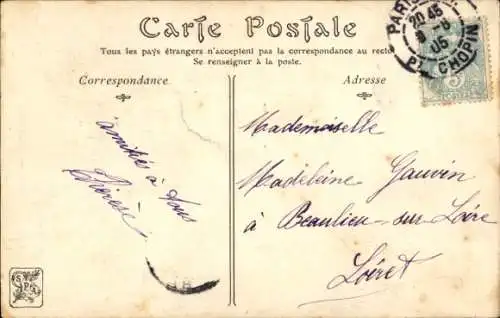 Carte Postale
Tous les pays étrangers n'acceptent pas la correspondance au recto
Se renseigner à la poste.
Correspondance
Adresse
PARIS
20 45
6
05
PL. CHOPIN
5
amitié à vous
Thérèse
Mademoiselle
Madeleine Gauvin
à Beaulieu-sur-Loire
Loiret